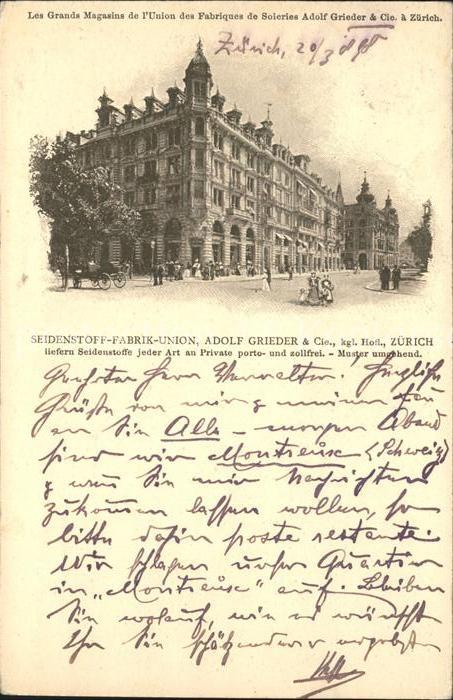 Les Grands Magasins de l'Union des Fabriques de Soieries Adolf Grieder & Cie. à Zürich.
Zürich, 20/3 1898
SEIDENSTOFF-FABRIK-UNION, ADOLF GRIEDER & Cie., kgl. Hofl., ZÜRICH
liefern Seidenstoffe jeder Art an Private porto- und zollfrei. - Muster umgehend.
Geehrter Herr Verwalter! Herzliche
Grüße von mir & meiner Frau
an Sie Alle - morgen Abend
sind wir Montreux (Schweiz)
& wenn Sie mir Nachrichten
zukommen lassen wollen, so
bitte dahin poste restante.
Wir schlagen unser Quartier
in „Montreux" auf. Bleiben
Sie wohlauf, wie es wünscht
Ihr Sie schätzender ergebener